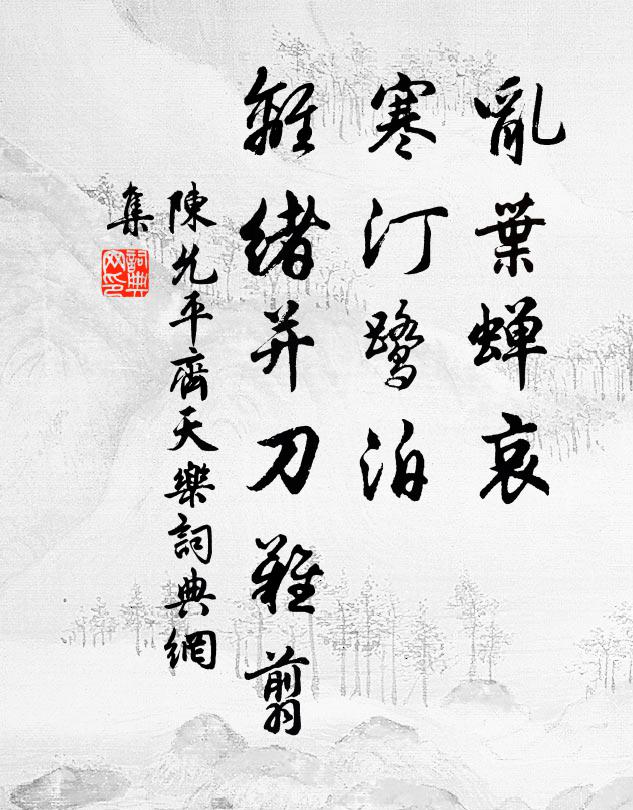 亂葉蝉哀
寒汀鷺泊
離緒并刀難翦
陳允平齊天樂詞典網
集
詞典
网印